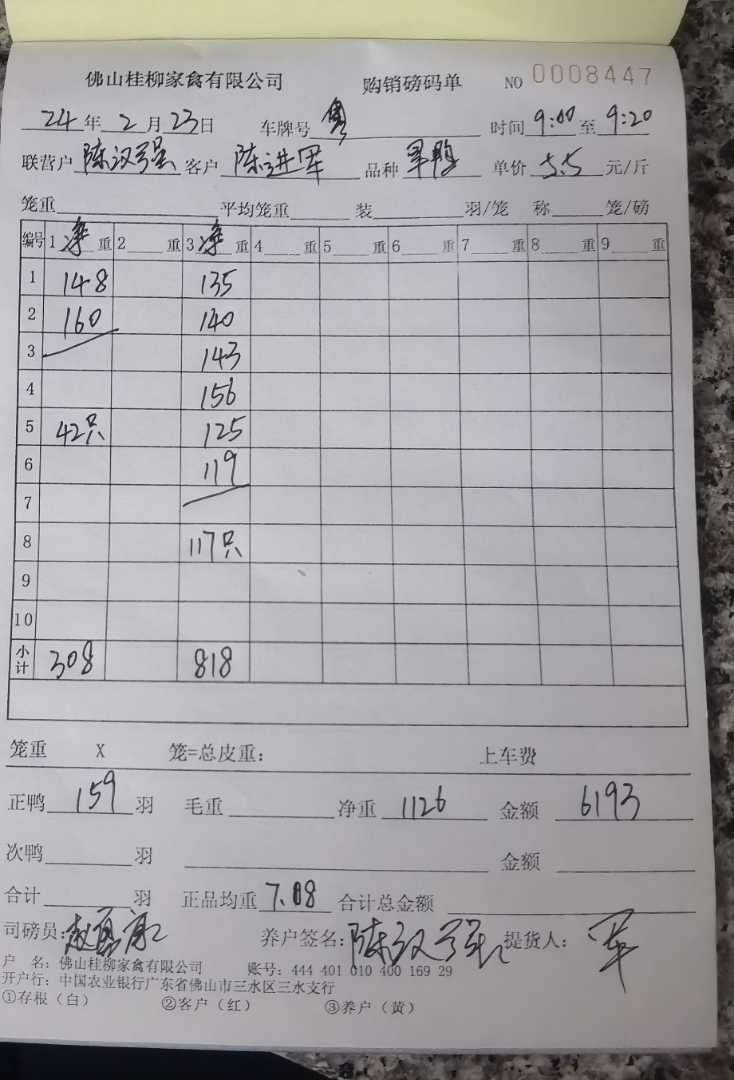 佛山桂柳家禽有限公司 购销磅码单 NO 0008447
24年2月23日 车牌号 粤 时间 9:00 至 9:20
联营户 陈汉强 客户 陈进军 品种 旱鸭 单价 5.5 元/斤
笼重 平均笼重 装 羽/笼 称 笼/磅
编号 1 净 重 2 重 3 净 重 4 重 5 重 6 重 7 重 8 重 9 重
1 148 135
2 160 140
3 143
4 156
5 42只 125
6 119
7
8 117只
9
10
小计 308 818
笼重 X 笼=总皮重: 上车费
正鸭 159 羽 毛重 净重 1126 金额 6193
次鸭 羽 金额
合计 羽 正品均重 7.08 合计总金额
司磅员: 养户签名: 陈汉强 提货人: 军
户 名: 佛山桂柳家禽有限公司 账号: 444 401 010 400 169 29
开户行: 中国农业银行广东省佛山市三水区三水支行
①存根（白） ②客户（红） ③养户（黄）